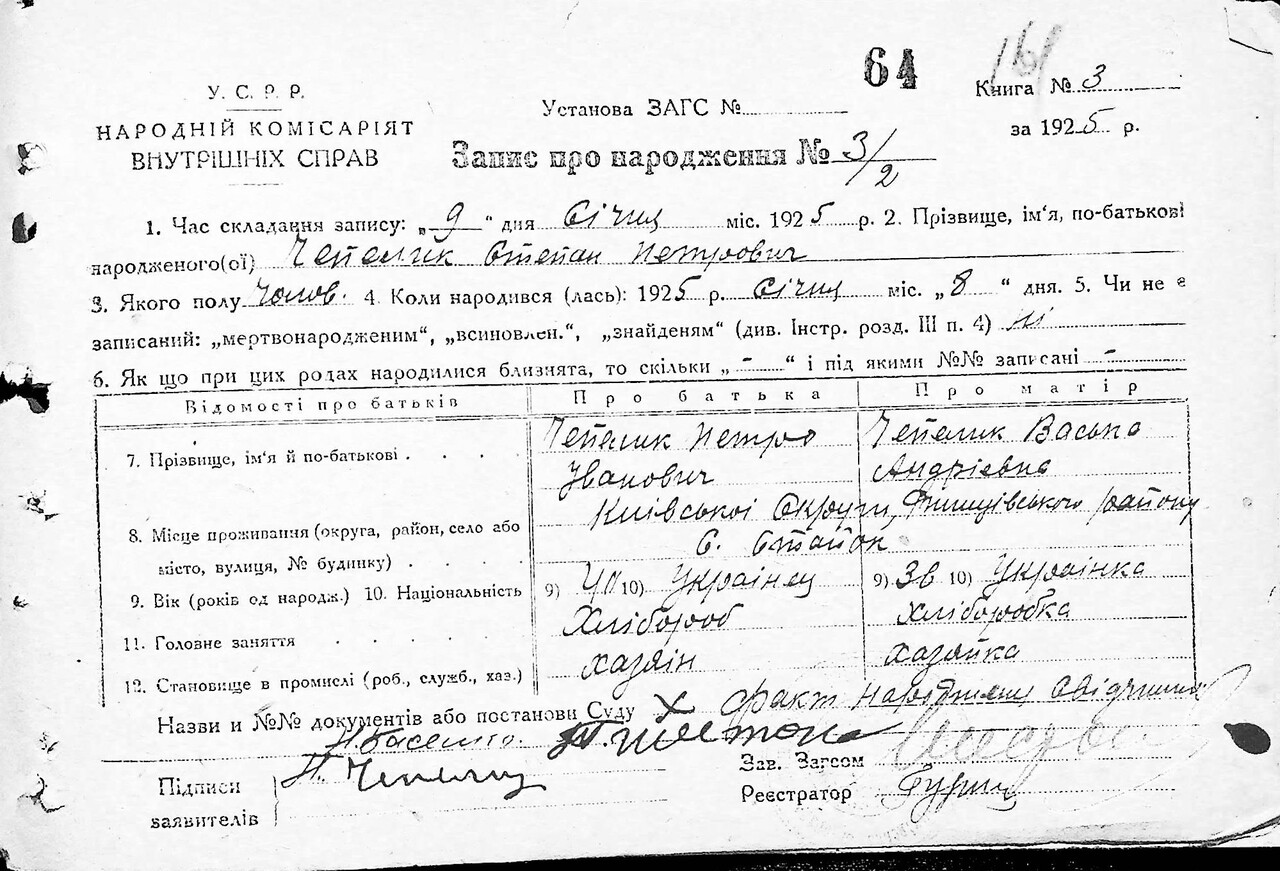 64
У. С. Р. Р.
НАРОДНІЙ КОМІСАРІЯТ
ВНУТРІШНІХ СПРАВ
Установа ЗАГС №
Книга № 3
за 1925 р.
Запис про народження № 3/2
1. Час складання запису: „9“ дня Січня міс. 1925 р. 2. Прізвище, ім'я, по-батькові
народженого(ої) Чепелик Степан Петрович
3. Якого полу Чолов. 4. Коли народився (лась): 1925 р. Січня міс. „8“ дня. 5. Чи не є
записаний: „мертвонародженим“, „всиновлен.“, „знайденям“ (див. Інстр. розд. III п. 4) Ні
6. Як що при цих родах народилися близнята, то скільки „-“ і під якими №№ записані -
Відомості про батьків Про батька Про матір
7. Прізвище, ім'я й по-батькові . . . . Чепелик Петро Іванович Чепелик Васька Андріевна
8. Місце проживання (округа, район, село або Київської Округи, району
місто, вулиця, № будинку) . . . . С. Стайок
9. Вік (років од народж.) 10. Національність 9) 40 10) Українец 9) 38 10) Українка
11. Головне заняття . . . . . Хлібороб Хліборобка
12. Становище в промислі (роб., служб., хаз.) хазяін хазяйка
Назви и №№ документів або постанови Суду Х факт народження свідчили
Підписи
заявителів
П. Чепелик
Зав. Загсом
Реєстратор